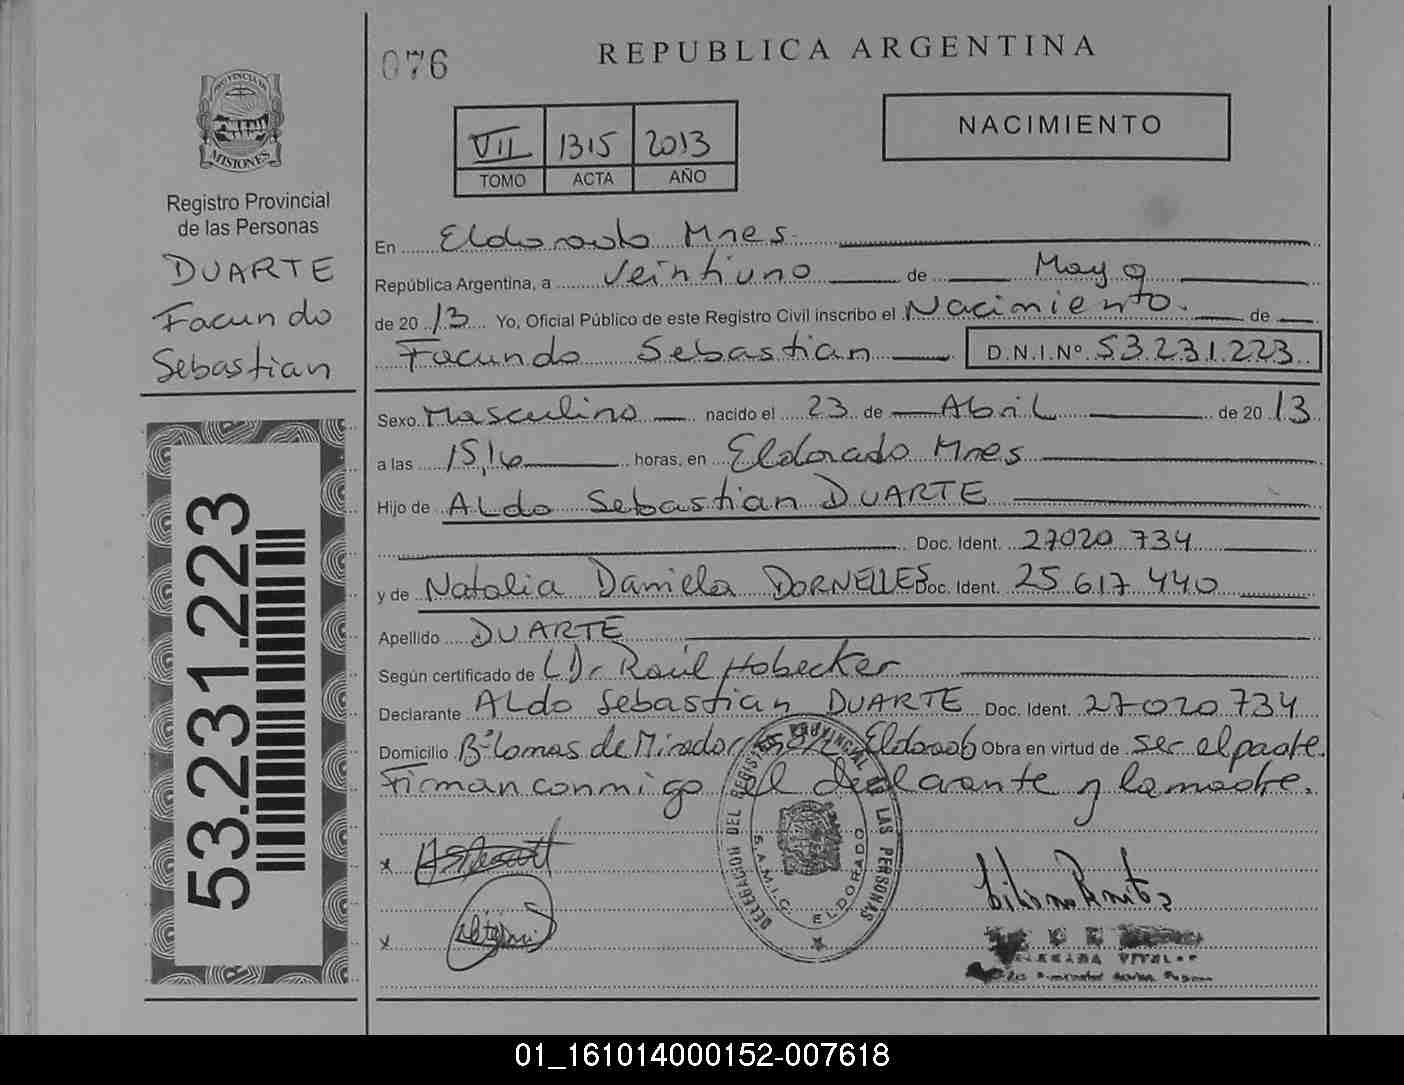 076
REPUBLICA ARGENTINA
PROVINCIA DE
MISIONES
Registro Provincial
de las Personas
DUARTE
Facundo
Sebastian
53.231.223
VII 1315 2013
TOMO ACTA AÑO
NACIMIENTO
En Eldorado Mnes.
República Argentina, a Veintiuno de Mayo
de 2013 Yo, Oficial Público de este Registro Civil inscribo el Nacimiento. de
Facundo Sebastian D.N.I.Nº 53.231.223
Sexo Masculino nacido el 23 de Abril de 2013
a las 15,16 horas, en Eldorado Mnes
Hijo de Aldo Sebastian DUARTE
Doc. Ident. 27020 734
y de Natalia Daniela DORNELLES Doc. Ident. 25 617 440
Apellido DUARTE
Según certificado de Dr Raúl Hobecker
Declarante Aldo Sebastian DUARTE Doc. Ident. 27020 734
Domicilio Bº Lomas de Mirador Eldorado Obra en virtud de ser el padre.
Firman conmigo el declarante y la madre.
x
x
DELEGACION DEL REGISTRO PROVINCIAL DE LAS PERSONAS
ELDORADO
01_161014000152-007618